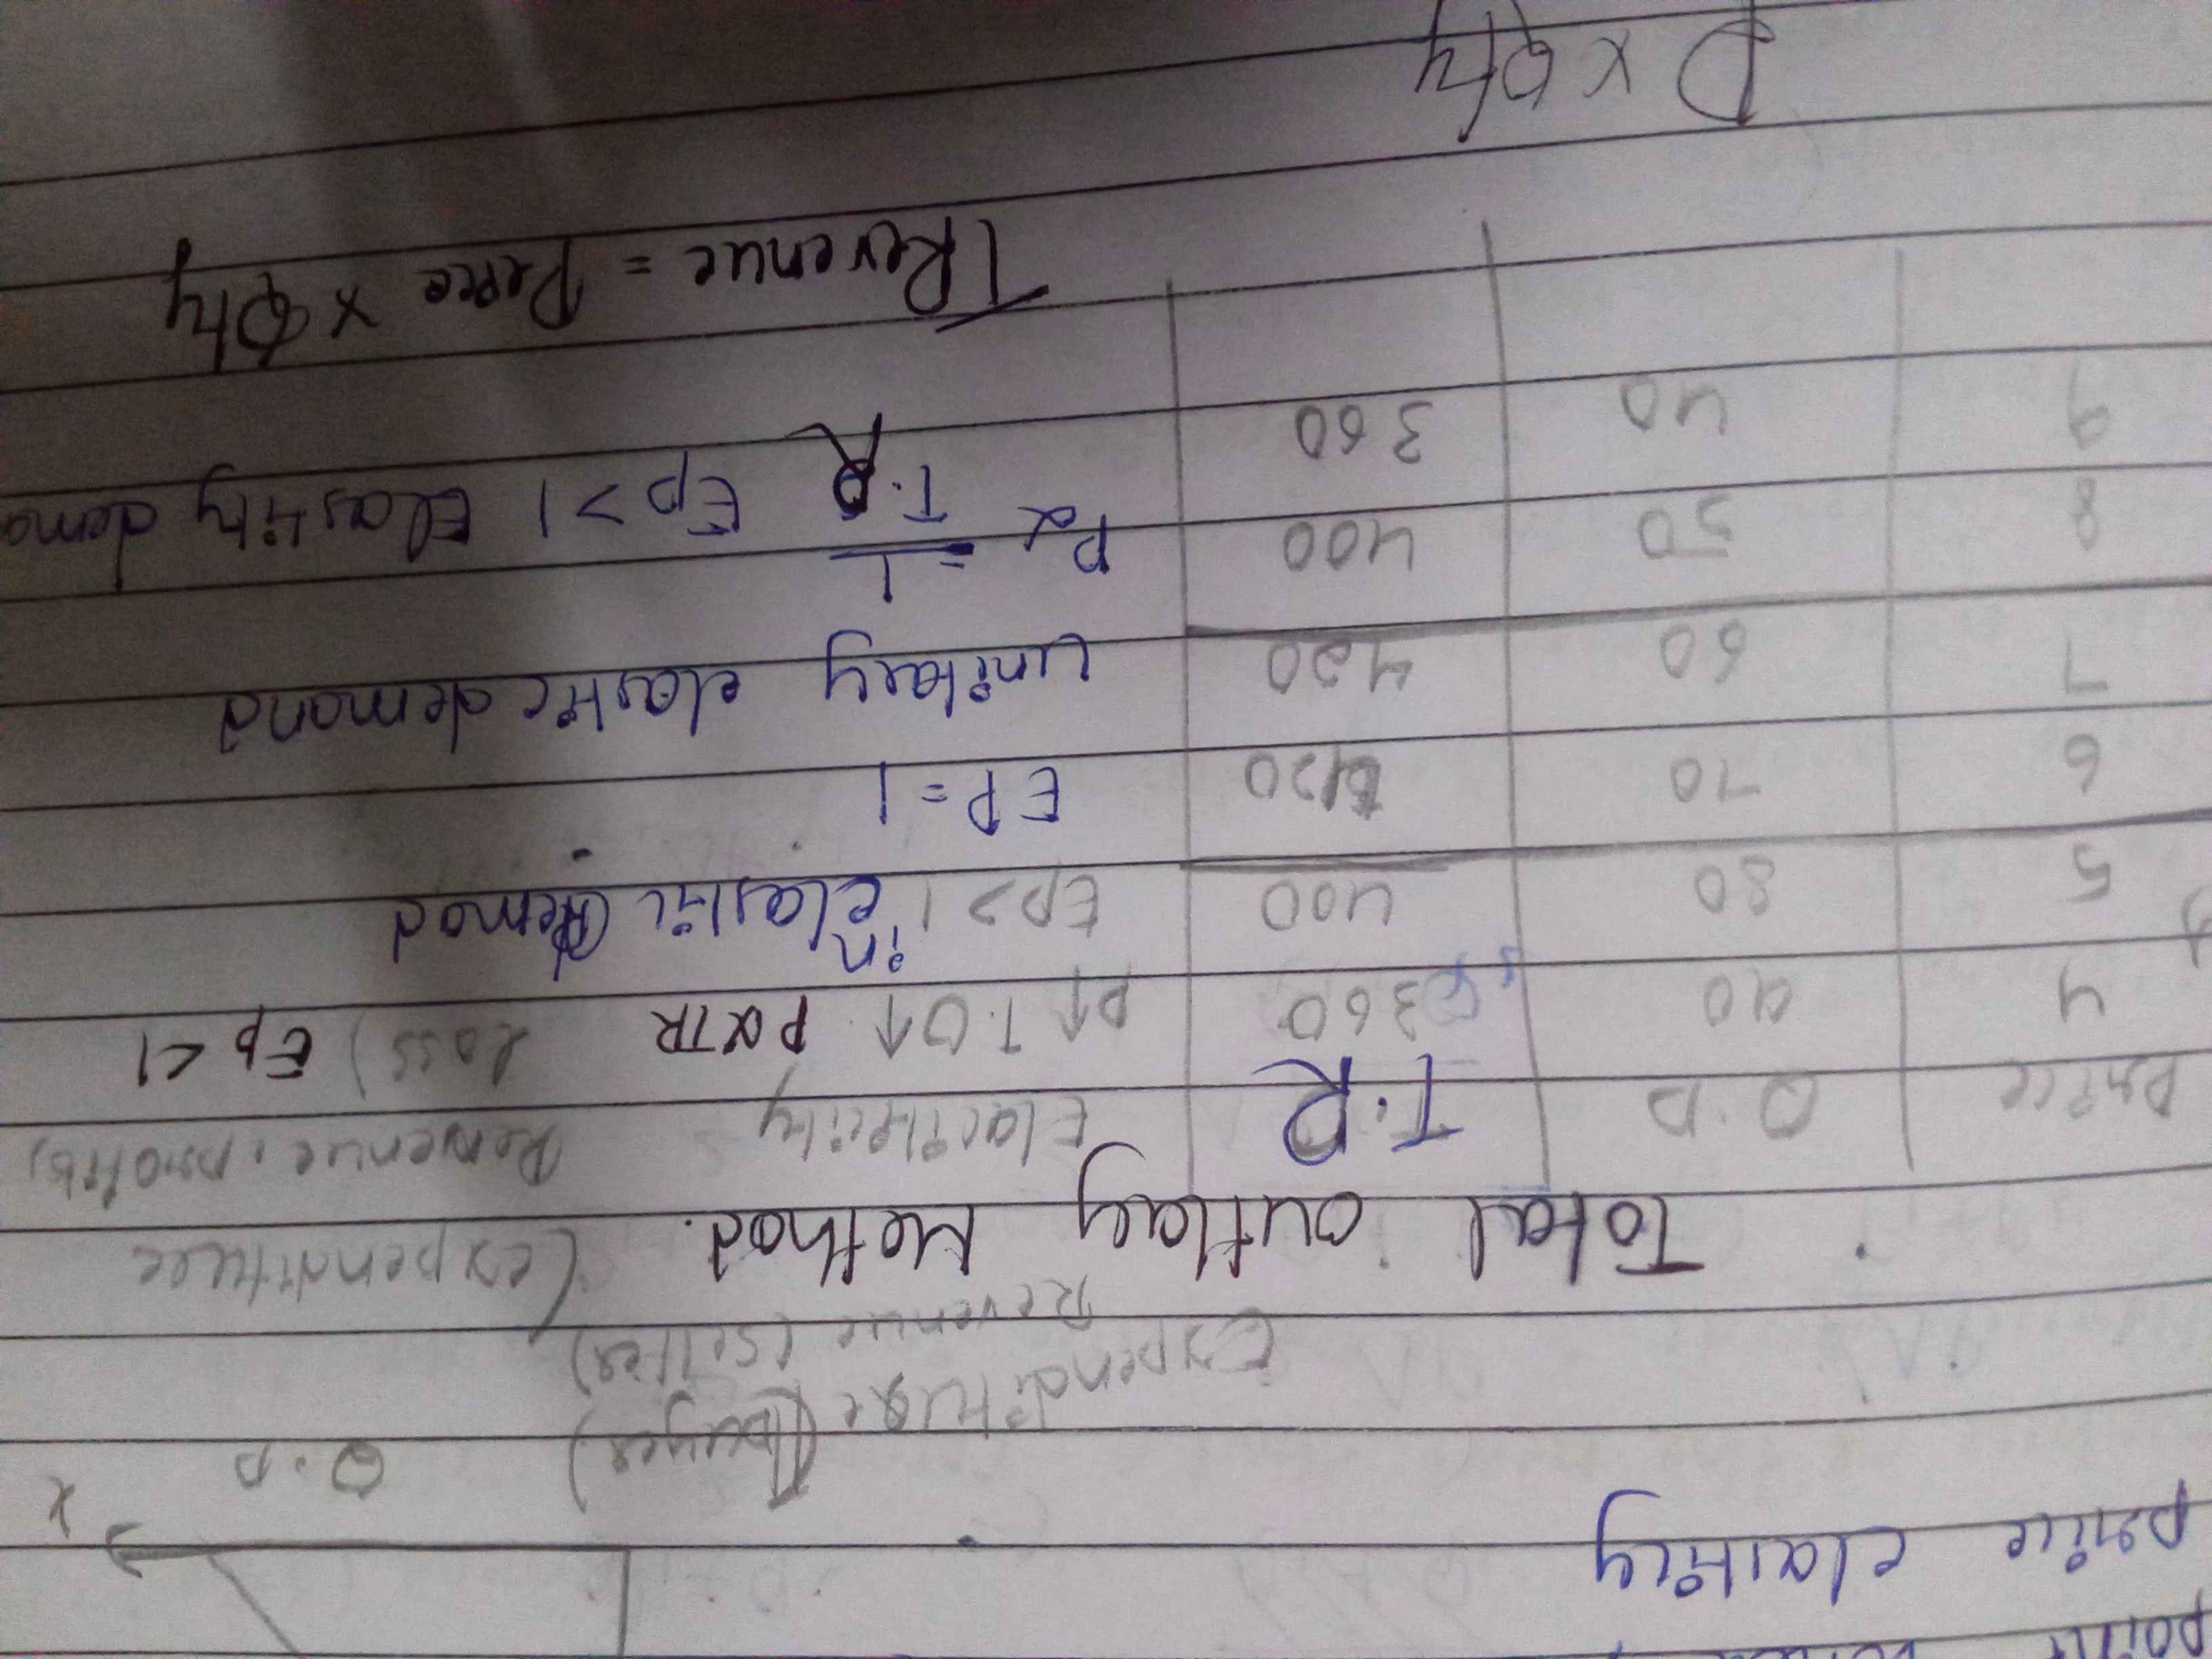 price elasticity
x
Q.D
Expenditure (buyer)
Revenue (seller)
Total outlay Method. (expenditure
Price Q.D T.R Elasticity Revenue, profits,
4 90 360 P↑ T.O↑ PαTR loss) Ep<1
5 80 400 Ep>1 inelastic Demad
6 70 420 EP=1
7 60 420 Unitary elastic demand
8 50 400 Pα = 1/T.R Ep>1 Elastity dema
9 40 360
TRevenue = Perce x Qty
P x Qty